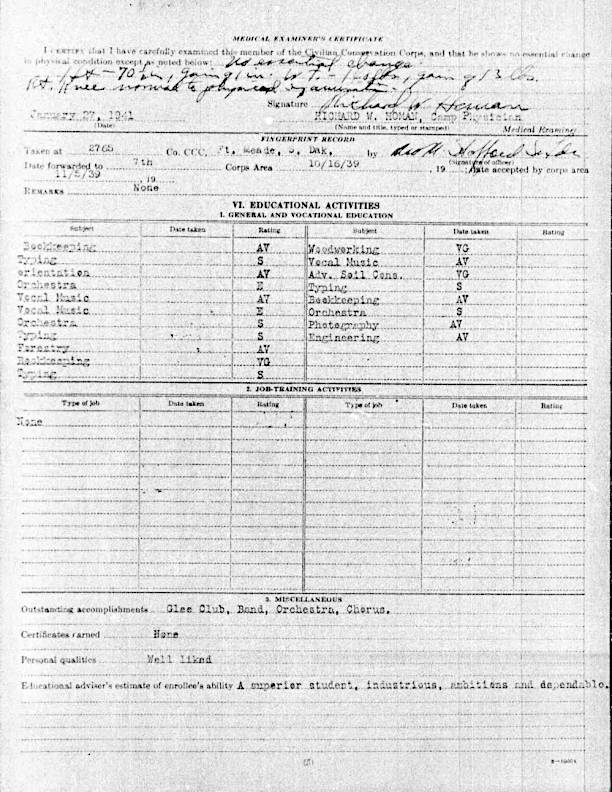 MEDICAL EXAMINER'S CERTIFICATE
I CERTIFY that I have carefully examined this member of the Civilian Conservation Corps, and that he shows no essential change
in physical condition except as noted below: No essential change
Ht - 70 in, gain 1 in. Wt. - lbs, gain of 13 lbs.
Rt. Knee normal to physical examination.
Signature Richard W. Homan
January 27, 1941 RICHARD W. HOMAN, Camp Physician
(Date) (Name and title, typed or stamped) Medical Examing
FINGERPRINT RECORD
Taken at 2765 Co. CCC, Ft. Meade, S. Dak. by
(Signature of officer)
Date forwarded to 7th Corps Area 10/16/39 , 19 Date accepted by corps area
11/5/39 , 19
REMARKS None
VI. EDUCATIONAL ACTIVITIES
1. GENERAL AND VOCATIONAL EDUCATION
Subject Date taken Rating Subject Date taken Rating
Bookkeeping AV Woodworking VG
Typing S Vocal Music AV
orientation AV Adv. Soil Cons. VG
Orchestra E Typing S
Vocal Music AV Bookkeeping AV
Vocal Music E Orchestra S
Orchestra S Photography AV
Typing S Engineering AV
Forestry AV
Bookkeeping VG
Typing S
2. JOB-TRAINING ACTIVITIES
Type of job Date taken Rating Type of job Date taken Rating
None
3. MISCELLANEOUS
Outstanding accomplishments Glee Club, Band, Orchestra, Chorus.
Certificates earned None
Personal qualities Well liked
Educational adviser's estimate of enrollee's ability A superior student, industrious, ambitious and dependable.